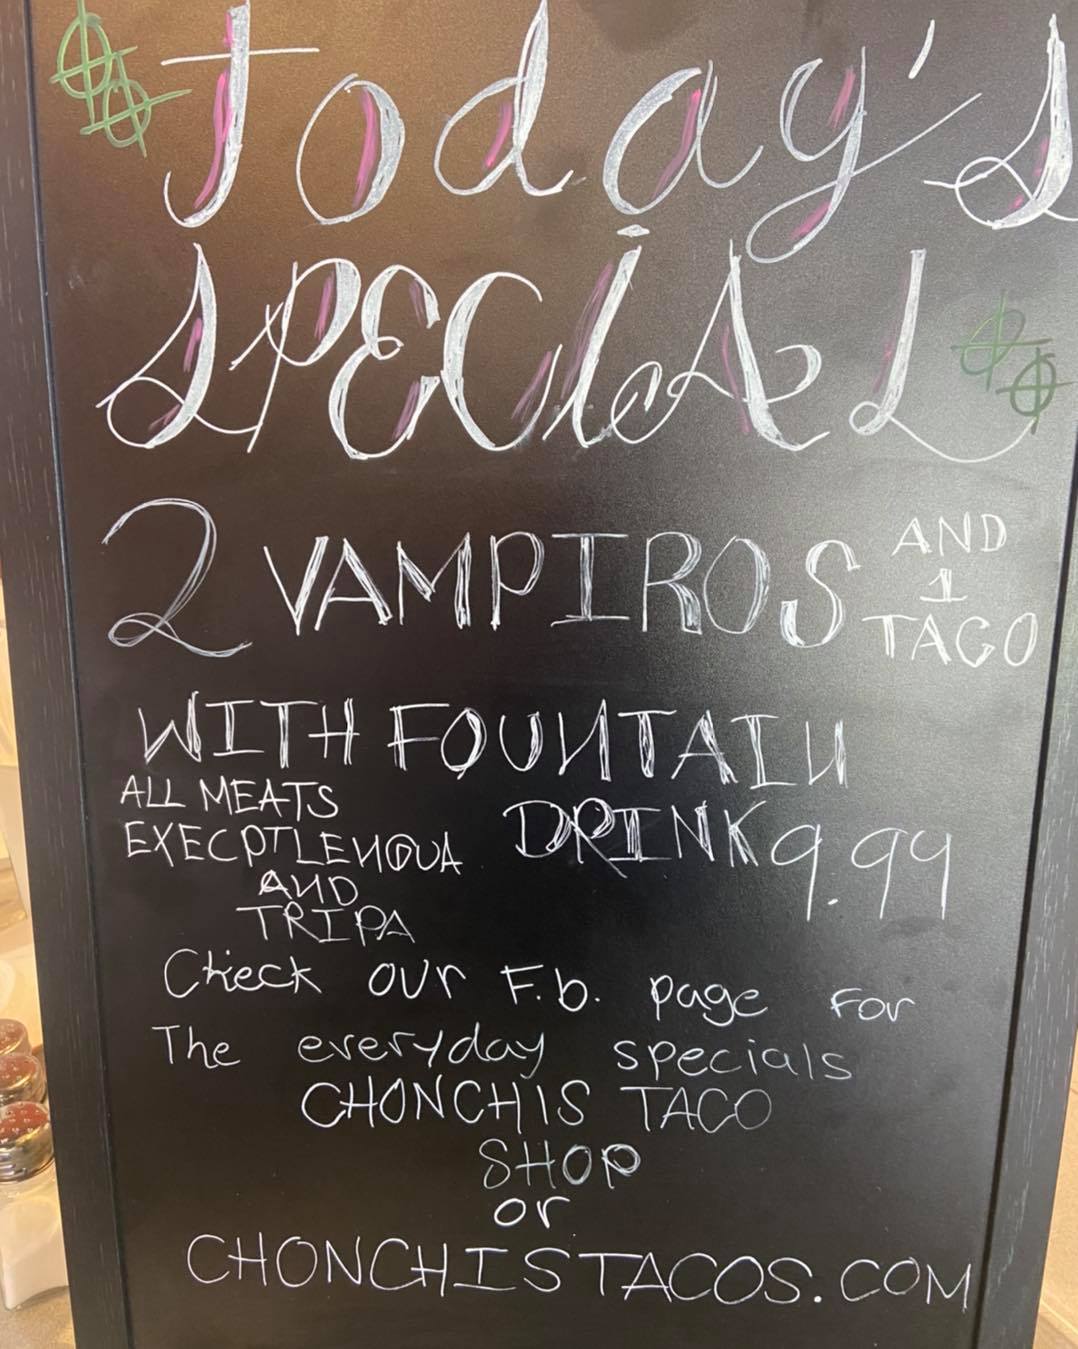 Today's
SPECiAL
2 VAMPIROS AND 1 TACO
WITH FOUNTAIN
DRINK 9.99
ALL MEATS
EXECPT LENGUA
AND
TRIPA
Check our F.b. page For
The everyday specials
CHONCHIS TACO
SHOP
or
CHONCHISTACOS.COM